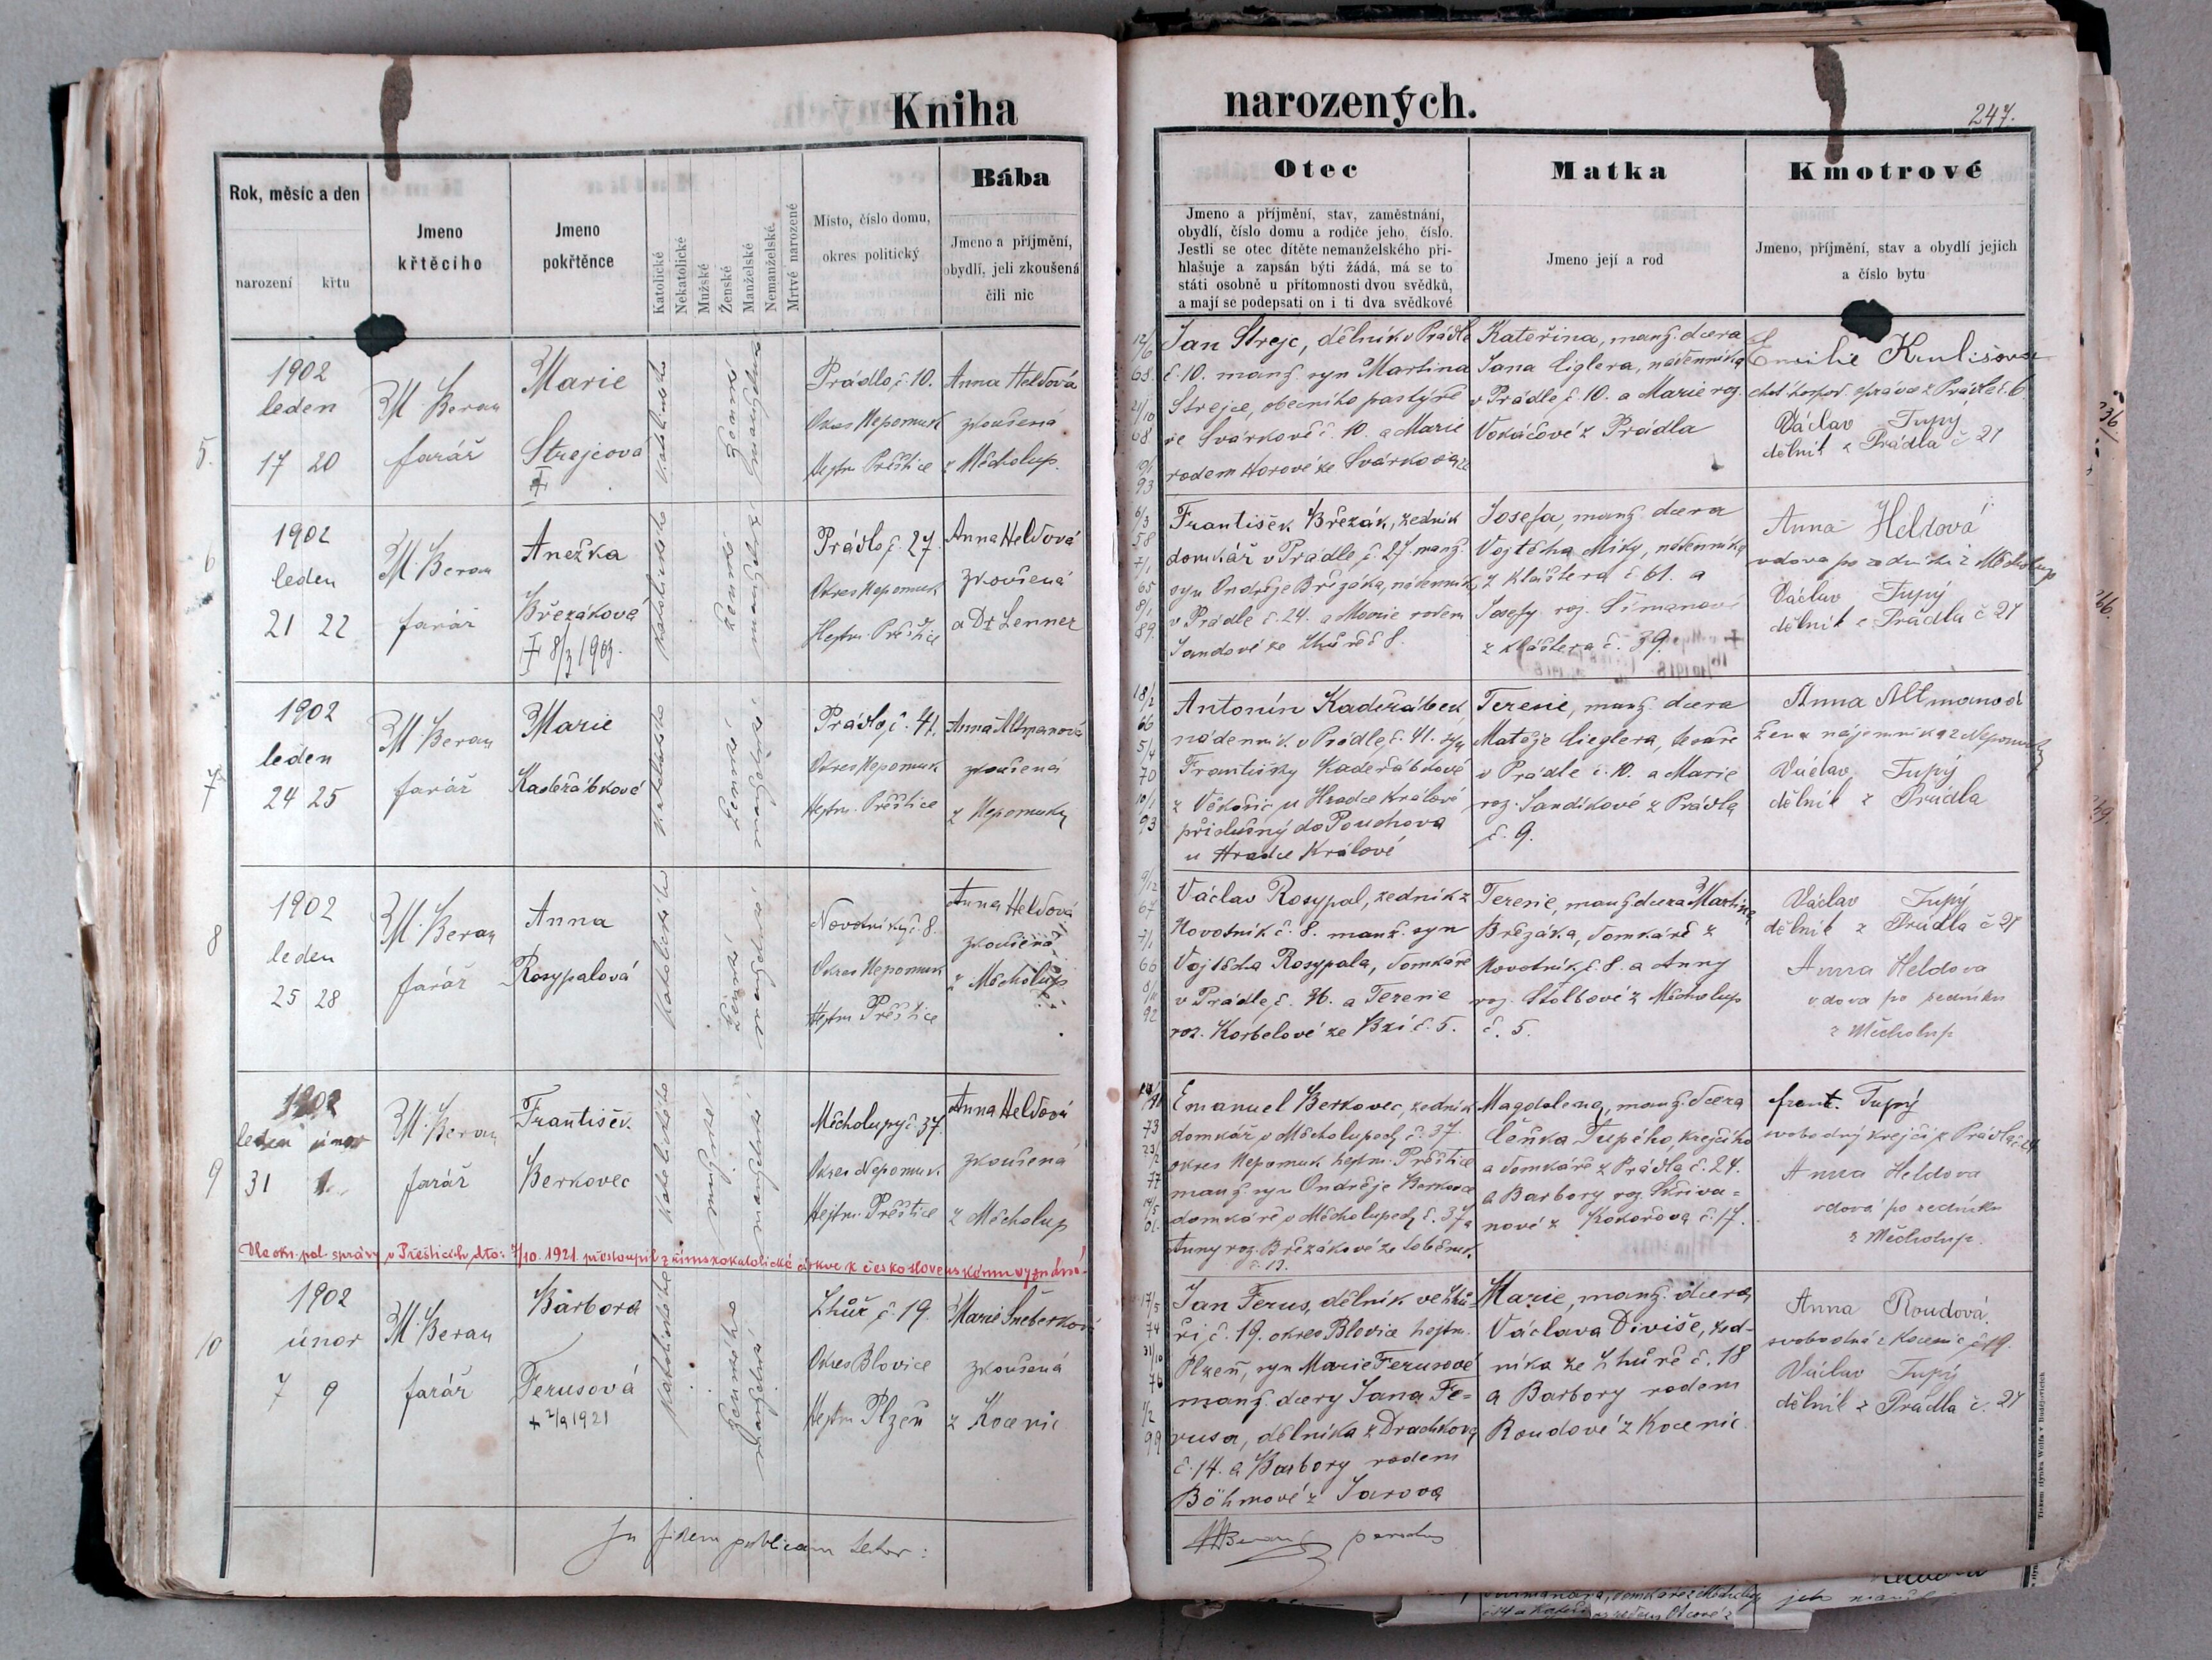 Kniha
narozených.
247.
Rok, měsíc a den
narození
křtu
Jmeno
křtěcího
Jmeno
pokřtěnce
Katolické
Nekatolické
Mužské
Ženské
Manželské
Nemanželské.
Mrtvé narozené
Místo, číslo domu,
okres politický
Bába
Jmeno a příjmění,
obydlí, jeli zkoušená
čili nic
Otec
Jmeno a příjmění, stav, zaměstnání,
obydlí, číslo domu a rodiče jeho, číslo.
Jestli se otec dítěte nemanželského při-
hlašuje a zapsán býti žádá, má se to
státi osobně u přítomnosti dvou svědků,
a mají se podepsati on i ti dva svědkové
Matka
Jmeno její a rod
Kmotrové
Jmeno, příjmění, stav a obydlí jejich
a číslo bytu
5.
1902
leden
17 20
M. Beran
farář
Marie
Strejcová
Prádlo, č. 10.
Okres Nepomuk
Hejtm. Přeštice
Anna Heldová
zkoušená
z Měcholup.
Jan Strejc, dělník v Prádle
č. 10. manž. syn Martina
Strejce, obecního pastýře
ve Svárkově č. 10. a Marie
rodem Horové ze Svárkova
Kateřina, manž. dcera
Jana Ciglera, nádenníka
v Prádle č. 10. a Marie roz.
Vokáčové z Prádla
Emilie
Václav Tupý
dělník z Prádla č 21
6
1902
leden
21 22
M. Beran
farář
Anežka
Březáková
8/3 1903.
Prádlo, č. 27.
Okres Nepomuk
Hejtm. Přeštice
Anna Heldová
zkoušená
a Dr Lenner
František Březák, zedník
domkář v Prádle, č. 27. manž.
syn Ondřeje Březáka, nádenníka
v Prádle č. 24. a Marie rodem
Jandové ze Lhůře č 8.
Josefa, manž. dcera
Vojtěcha Míky, nádenníka
z Kláštera č 61. a
Josefy roz. Šimanové
z Kláštera č. 39.
Anna Heldová
vdova po zedníku z Měcholup
Václav Tupý
dělník z Prádla č 21
7
1902
leden
24 25
M. Beran
farář
Marie
Kadeřábková
Prádlo, č. 41.
Okres Nepomuk
Hejtm. Přeštice
Anna Altmanová
zkoušená
z Nepomuku
Antonín Kadeřábek
nádenník v Prádle, č. 41. syn
Františky Kadeřábkové
z Věkošic u Hradce Králové
příslušný do Pouchova
u Hradce Králové
Terezie, manž. dcera
Matěje Cieglera,
v Prádle č. 10. a Marie
roz. Jandíkové z Prádla
č. 9.
Anna Altmanová
žena nájemníka z Nepomuku
Václav Tupý
dělník z Prádla
8
1902
leden
25 28
M. Beran
farář
Anna
Rosypalová
Novotníky č. 8.
Okres Nepomuk
Hejtm. Přeštice
Anna Heldová
zkoušená
z Měcholup
Václav Rosypal, zedník z
Novotník č. 8. manž. syn
Vojtěcha Rosypala, domkáře
v Prádle, č. 26. a Terezie
roz. Korbelové ze Bzí č. 5.
Terezie, manž. dcera Martina
Březáka, domkáře z
Novotník, č. 8. a Anny
roz. Štolbové z Měcholup
č. 5.
Václav Tupý
dělník z Prádla č 21
Anna Heldova
vdova po zedníku
z Měcholup
9
1902
leden únor
31 1.
M. Beran
farář
František
Berkovec
Měcholupy č. 37.
Okres Nepomuk
Hejtm. Přeštice
Anna Heldová
zkoušená
z Měcholup
Emanuel Berkovec, zedník
domkář v Měcholupech č. 37.
okres Nepomuk hejtm. Přeštice
manž. syn Ondřeje Berkovce
domkáře v Měcholupech č. 37 a
Anny roz. Březákové ze
č. 12.
Magdalena, manž. dcera
Čeňka Tupého, krejčího
a domkáře z Prádla č. 24.
a Barbory roz. Skřiva=
nové z Kokořova č. 17.
frant. Tupý
svobodný krejčí z Prádla č. 24
Anna Heldova
vdova po zedníku
z Měcholup.
Dle okr. pol. správy v Přešticích, dto: 7/10. 1921 přestoupil z římskokatolické církve k československému vyznání!
10
1902
únor
7 9
M. Beran
farář
Barbora
Ferusová
+ 2/9 1921
Lhůř č. 19.
Okres Blovice
Hejtm. Plzeň
Marie Šneberková
zkoušená
z Kocenic
Jan Ferus, dělník ve Lhů-
ři, č. 19. okres Blovice hejtm.
Plzeň, syn Marie Ferusové
manž. dcery Jana Fe=
rusa, dělníka z Drachkova
č. 14. a Barbory rodem
Böhmové z Jarova
Marie, manž. dcera
Václava Diviše, zed-
níka ze Lhůře č. 18
a Barbory rodem
Roudové z Kocenic.
Anna Roudová
svobodná z Kocenic č 19.
Václav Tupý
dělník z Prádla č. 21
In fidem publicam
MBeran parochus